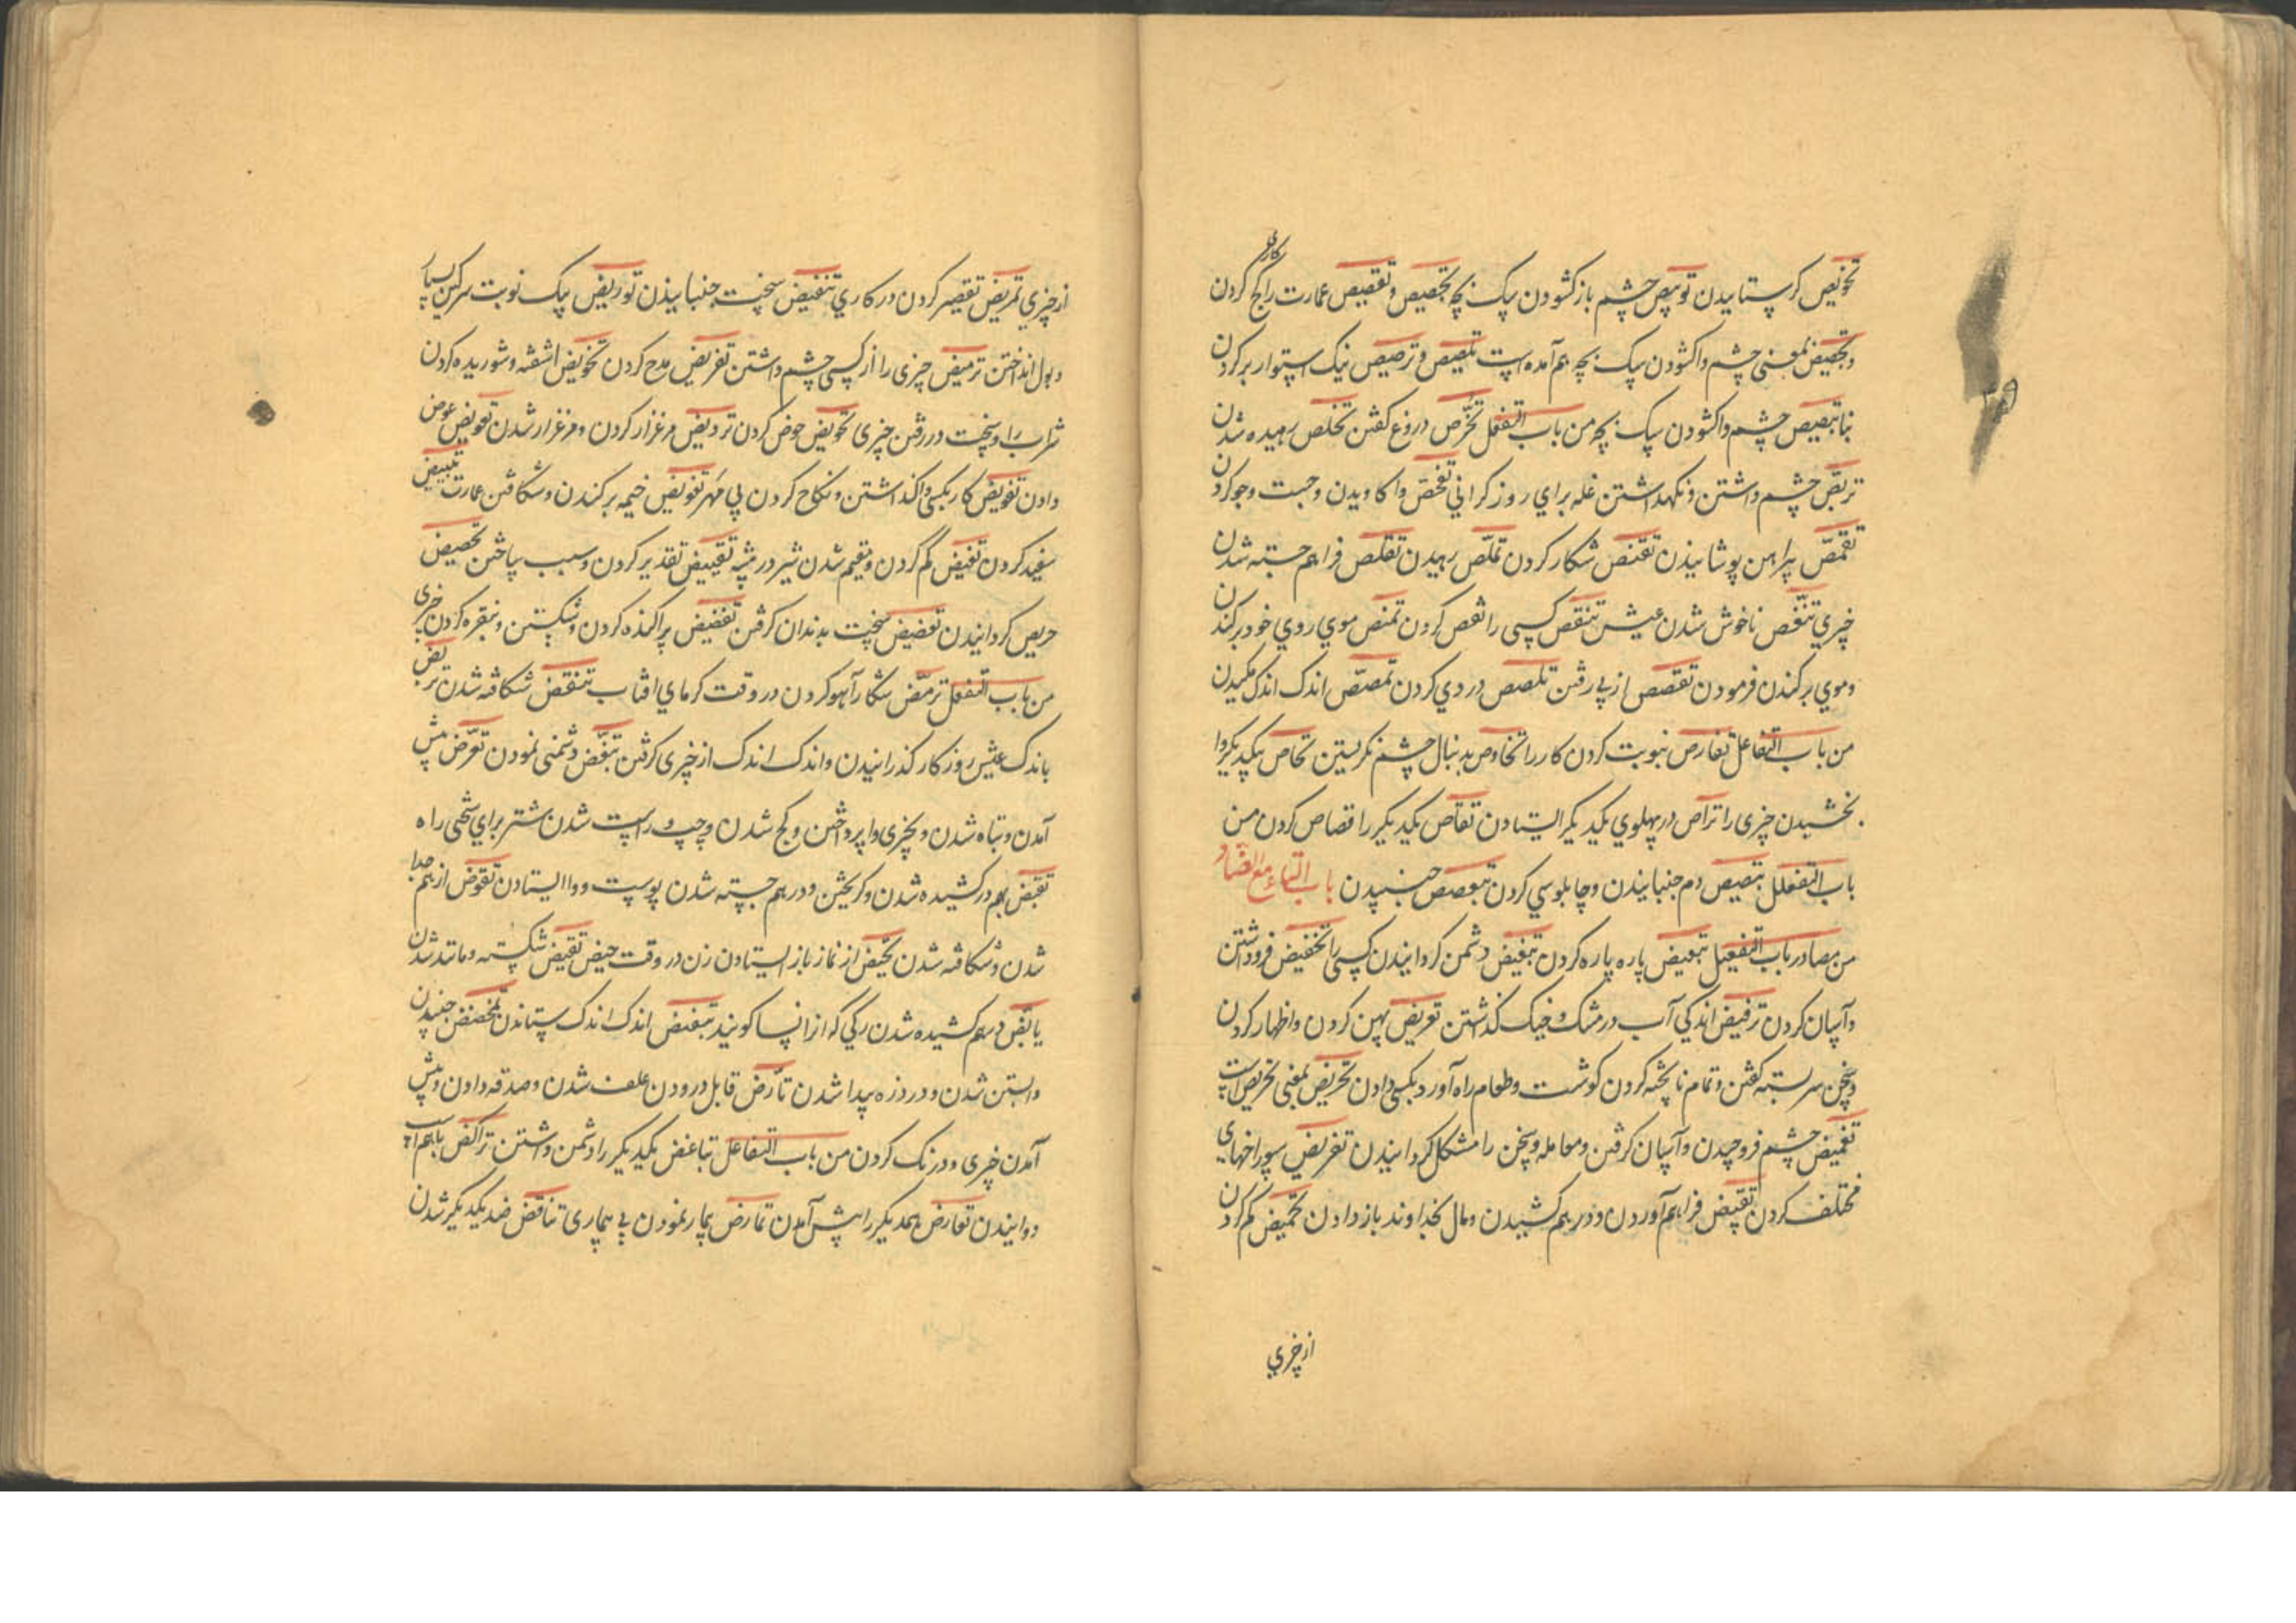 کاری
تخویص کرستانیدن توبیص چشم باز کشودن سک بچه تجصیص و تقصیص عمارت را کچ کردن
و تجصیص بمعنی چشم واکشودن سک بچه هم آمده است تلصیص و ترصیص نیک استوار بر کردن
بنا تبصیص چشم واکشودن سک بچه من باب التفعل تخرّص دروغ کفتن تخلص رهیده شدن
تربّص چشم داشتن و نکهداشتن غله برای روز کرانی تفحّص واکاویدن و جست و جو کردن
تقمّص پیراهن پوشانیدن تقنص شکار کردن تملّص رهیدن تقلّص فراهم جسته شدن
چیزی تنغّص ناخوش شدن عیش تنقص کسی را نقص کردن تنمص موی روی خود بر کندن
و موی بر کندن فرمودن تقصص از پی رفتن تلصص دزدی کردن تمصّص اندک اندک مکیدن
من باب التفاعل تفارص بنوبت کردن کار را تخاوص بدنبال چشم نکریستن تحاص یکدیکر را
بخشیدن چیزی را تراص در پهلوی یکدیکر ایستادن تقاص یکدیکر را قصاص کردن من
باب التفعلل تبصبص دم جنبانیدن و چابلوسی کردن تبعصص جنبیدن باب التاء مع الضاد
من مصادر باب التفعیل تبعیض پاره پاره کردن تبغیض دشمن کردانیدن کسی را تخفیض فروداشتن
و آسان کردن ترفیض اندکی آب در مشک و خیک کذاشتن تعریض پهن کردن و اظهار کردن
و سخن سربسته کفتن و تمام نا پخته کردن کوشت و طعام راه آورد بکسی دادن تحریض بمعنی تحریص است
تغمیض چشم فروچیدن و آسان کرفتن و معامله و سخن را مشکل کردانیدن تفریض سوراخهای
مختلف کردن تقبیض فراهم آوردن و درهم کشیدن و مال بخداوند باز دادن تحمیض کم کردن
از چیزی
از چیزی تمریض تقصیر کردن در کاری تنفیض سخت جنبانیدن توریض یک نوبت سرکین بسیار
و بول انداختن ترمیض چیزی را از کسی چشم داشتن تقریض مدح کردن تخویض اشفته و شوریده کردن
شراب را و سخت در رفتن چیزی تحویض حوض کردن ترویض مرغزار کردن و مرغزار شدن تعویض عوض
دادن تفویض کار بکسی واکذاشتن و نکاح کردن بی مهر تقویض خیمه بر کندن و شکافتن عمارت تبییض
سفید کردن تغییض کم کردن و مقیم شدن شیر در بیشه تقییض تقدیر کردن و سبب ساختن تحضیض
حریص کردانیدن تعضیض سخت بدندان کرفتن تفضیض پراکنده کردن و شکستن و بنقره کردن چیزی
من باب التفعل ترمّض شکار آهو کردن در وقت کرمای افتاب تنقض شکافته شدن تبرض
باندک عیش روزکار کذرانیدن و اندک اندک از چیزی کرفتن تبغّض دشمنی نمودن تعرّض پیش
آمدن و تباه شدن و بچیزی وا پرداختن و کج شدن و چپ و راست شدن شتر برای سختی راه
تقبّض بهم درکشیده شدن و کریختن و درهم جسته شدن پوست و وا ایستادن تقوّض از هم جدا
شدن و شکافته شدن تحیّض از نماز باز ایستادن زن در وقت حیض تقیّض شکسته و مانند شدن
درهم کشیده شدن رکی که از انسا کویند تبعّض اندک اندک ستاندن تمخّض جنبیدن
و ابستن شدن و درد زه پیدا شدن تأرّض قابل درودن علف شدن و صدقه دادن و پیش
آمدن چیزی و درنک کردن من باب التفاعل تباغض یکدیکر را دشمن داشتن تراکض باهم اسب
دوانیدن تعارض همدیکر را پیش آمدن تمارض بیمار نمودن بی بیماری تناقض ضد یکدیکر شدن